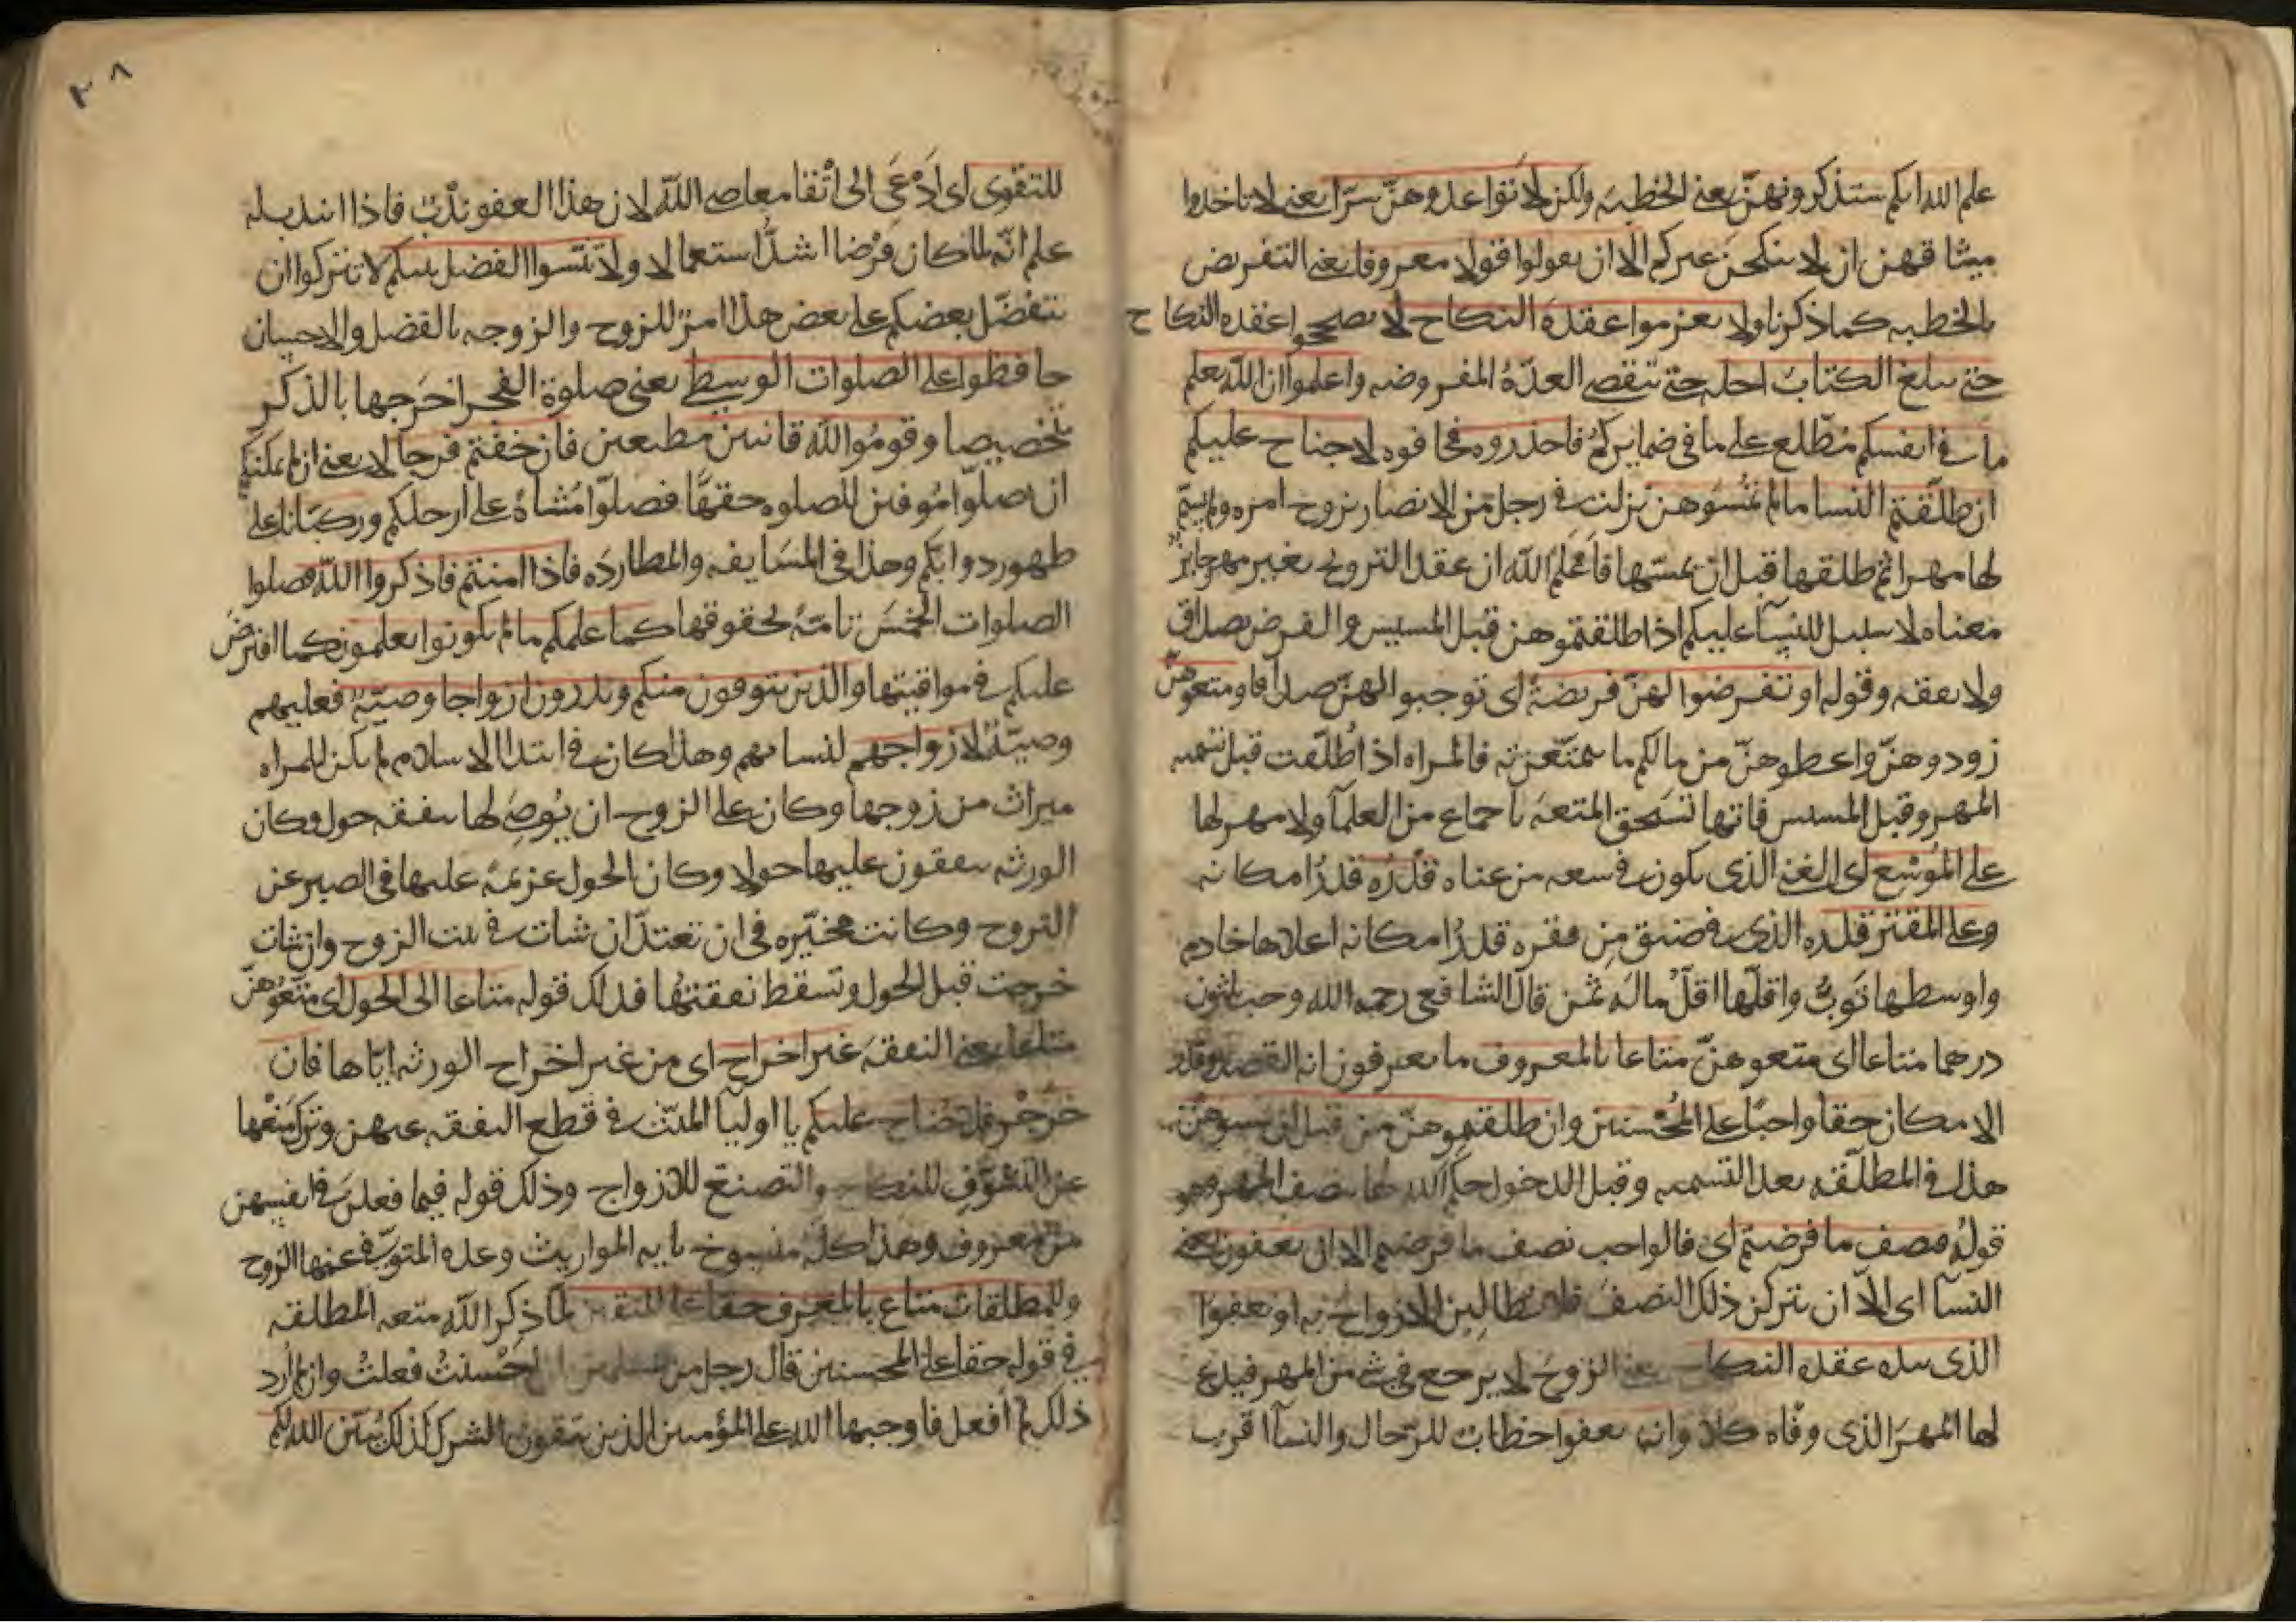 علم الله انكم ستذكرونهنّ يعني الخطبه ولكن لا تواعدوهنّ سرّا يعني لا تاخذوا
ميثاقهن ان لا ينكحن غيركم الّا ان تقولوا قولا معروفا يعني التعريض
بالخطبه كما ذكرنا ولا تعزموا عقدة النكاح لا تصححوا عقده النكاح
حتى يبلغ الكتاب اجله حتى تنقضي العدّة المفروضه واعلموا ان الله يعلم
ما في انفسكم مطّلع على ما في ضمايركم فاحذروه فخافوه لا جناح عليكم
ان طلّقتم النسا ما لم تمسّوهن نزلت في رجل من الانصار تزوج امره ولم يسمّ
لها مهرا ثم طلقها قبل ان يمسّها فاعلم الله ان عقد التزويج بغير مهر جايز
معناه لا سبيل للنسآ عليكم اذا طلقتموهن قبل المسيس والفرض بصداق
ولا نفقه وقوله او تفرضوا لهنّ فريضة اي توجبوا لهنّ صداقا ومتعوهنّ
زودوهنّ واعطوهنّ من مالكم ما يتمتّعن به فالمراه اذا طُلّقت قبل تسميه
المهر وقبل المسيس فانها تستحق المتعه باجماع من العلمآ ولا مهر لها
على المُوسع اي الغني الذي يكون في سعه من غناه قدَرُه قدرُ امكانه
وعلى المقتر قدره الذي في ضيق من فقره قدرُ امكانه اعلاها خادم
واوسطها ثوبٌ واقلّها اقلّ ماله ثمن قال الشافعي رحمه الله وحسن ثلثون
درهما متاعا اي متعوهنّ متاعا بالمعروف ما تعرفون انه القصد وقدر
الامكان حقا واجبًا على المُحْسنين وان طلقتموهنّ من قبل ان تمسوهنّ
هذا في المطلّقه بعد التسميه وقبل الدخول حكم الله لها بنصف المهر وهو
قولُه فنصف ما فرضتم اي فالواجب نصف ما فرضتم الا ان يعفون يعني
النسآ اي الّا ان يتركن ذلك النصف فلا يطالبن الازواج به او يعفوا
الذي بيده عقده النكاح يعني الزوج لا يرجع في شي من المهر فيدع
لها المهرَ الذي وفّاه كلا وان تعفوا خطاب للرّجال والنسآ اقرب
للتقوى اي اَدْعَى الى اتّقا معاصي الله لان هذا العفو ندْبٌ فاذا انتدب له
علم انّه لما كان فرضا اشدُّ استعمالا ولا تنسوا الفضل بينكم لا تتركوا ان
يتفضّل بعضكم على بعض هذا امرٌ للزوج والزوجه بالفضل والاحسان
حافظوا على الصلوات الوسطى يعني صلوة الفجر اخرَجها بالذكر
تخصيصا وقومُوا لله قانتين مطيعين فان خفتم فرجالا يعني ان لم يمكنكم
ان تصلّوا مُوفين للصلوه حقّها فصلّوا مُشاة على ارجلكم وركبانا على
ظهور دوابكم وهذا في المسَايفه والمطاردَه فاذا امنتم فاذكروا الله فصلوا
الصلوات الخمسَ تامّة بحقوقها كما علمكم ما لم تكونوا تعلمون كما افترض
عليكم في مواقيتها والذين يتوفون منكم ويذرون ازواجا وصيّةً فعليهم
وصيّةٌ لازواجهم لنسائهم وهذا كان في ابتدا الاسلام لم يكن للمراه
ميراث من زوجها وكان على الزوج ان يُوصي لها بنفقه حول وكان
الورثه ينفقون عليها حولا وكان الحول عزيمة عليها في الصبر عن
التزوج وكانت مخيّره في ان تعتدّ ان شات في بيت الزوج وان شات
خرجت قبل الحول وتسقط نفقتُها فذلك قوله متاعا الى الحول اي متّعُوهنّ
متاعا يعني النفقه غير اخراج اي من غير اخراج الورثه ايّاها فان
خرجْن فلا جُناح عليكم يا اوليآ الميّت في قطع النفقه عنهن وترك منْعها
عن التشوّف للنكاح والتصنع للازواج وذلك قوله فيما فعلن في انفسهن
من معروف وهذا كلّه منسوخ بايه المواريث وعده المتوفّى عنها الزوج
وللمطلقات متاع بالمعروف حقا على المتقين لمّا ذكر الله متعه المطلقه
في قوله حقا على المحسنين قال رجل من المسلمين ان احْسنتُ فعلتُ وان لم اُرد
ذلك لم افعل فاوجبها الله على المؤمنين الذين يتقون الشرك كذلك يُبيّن الله لكم